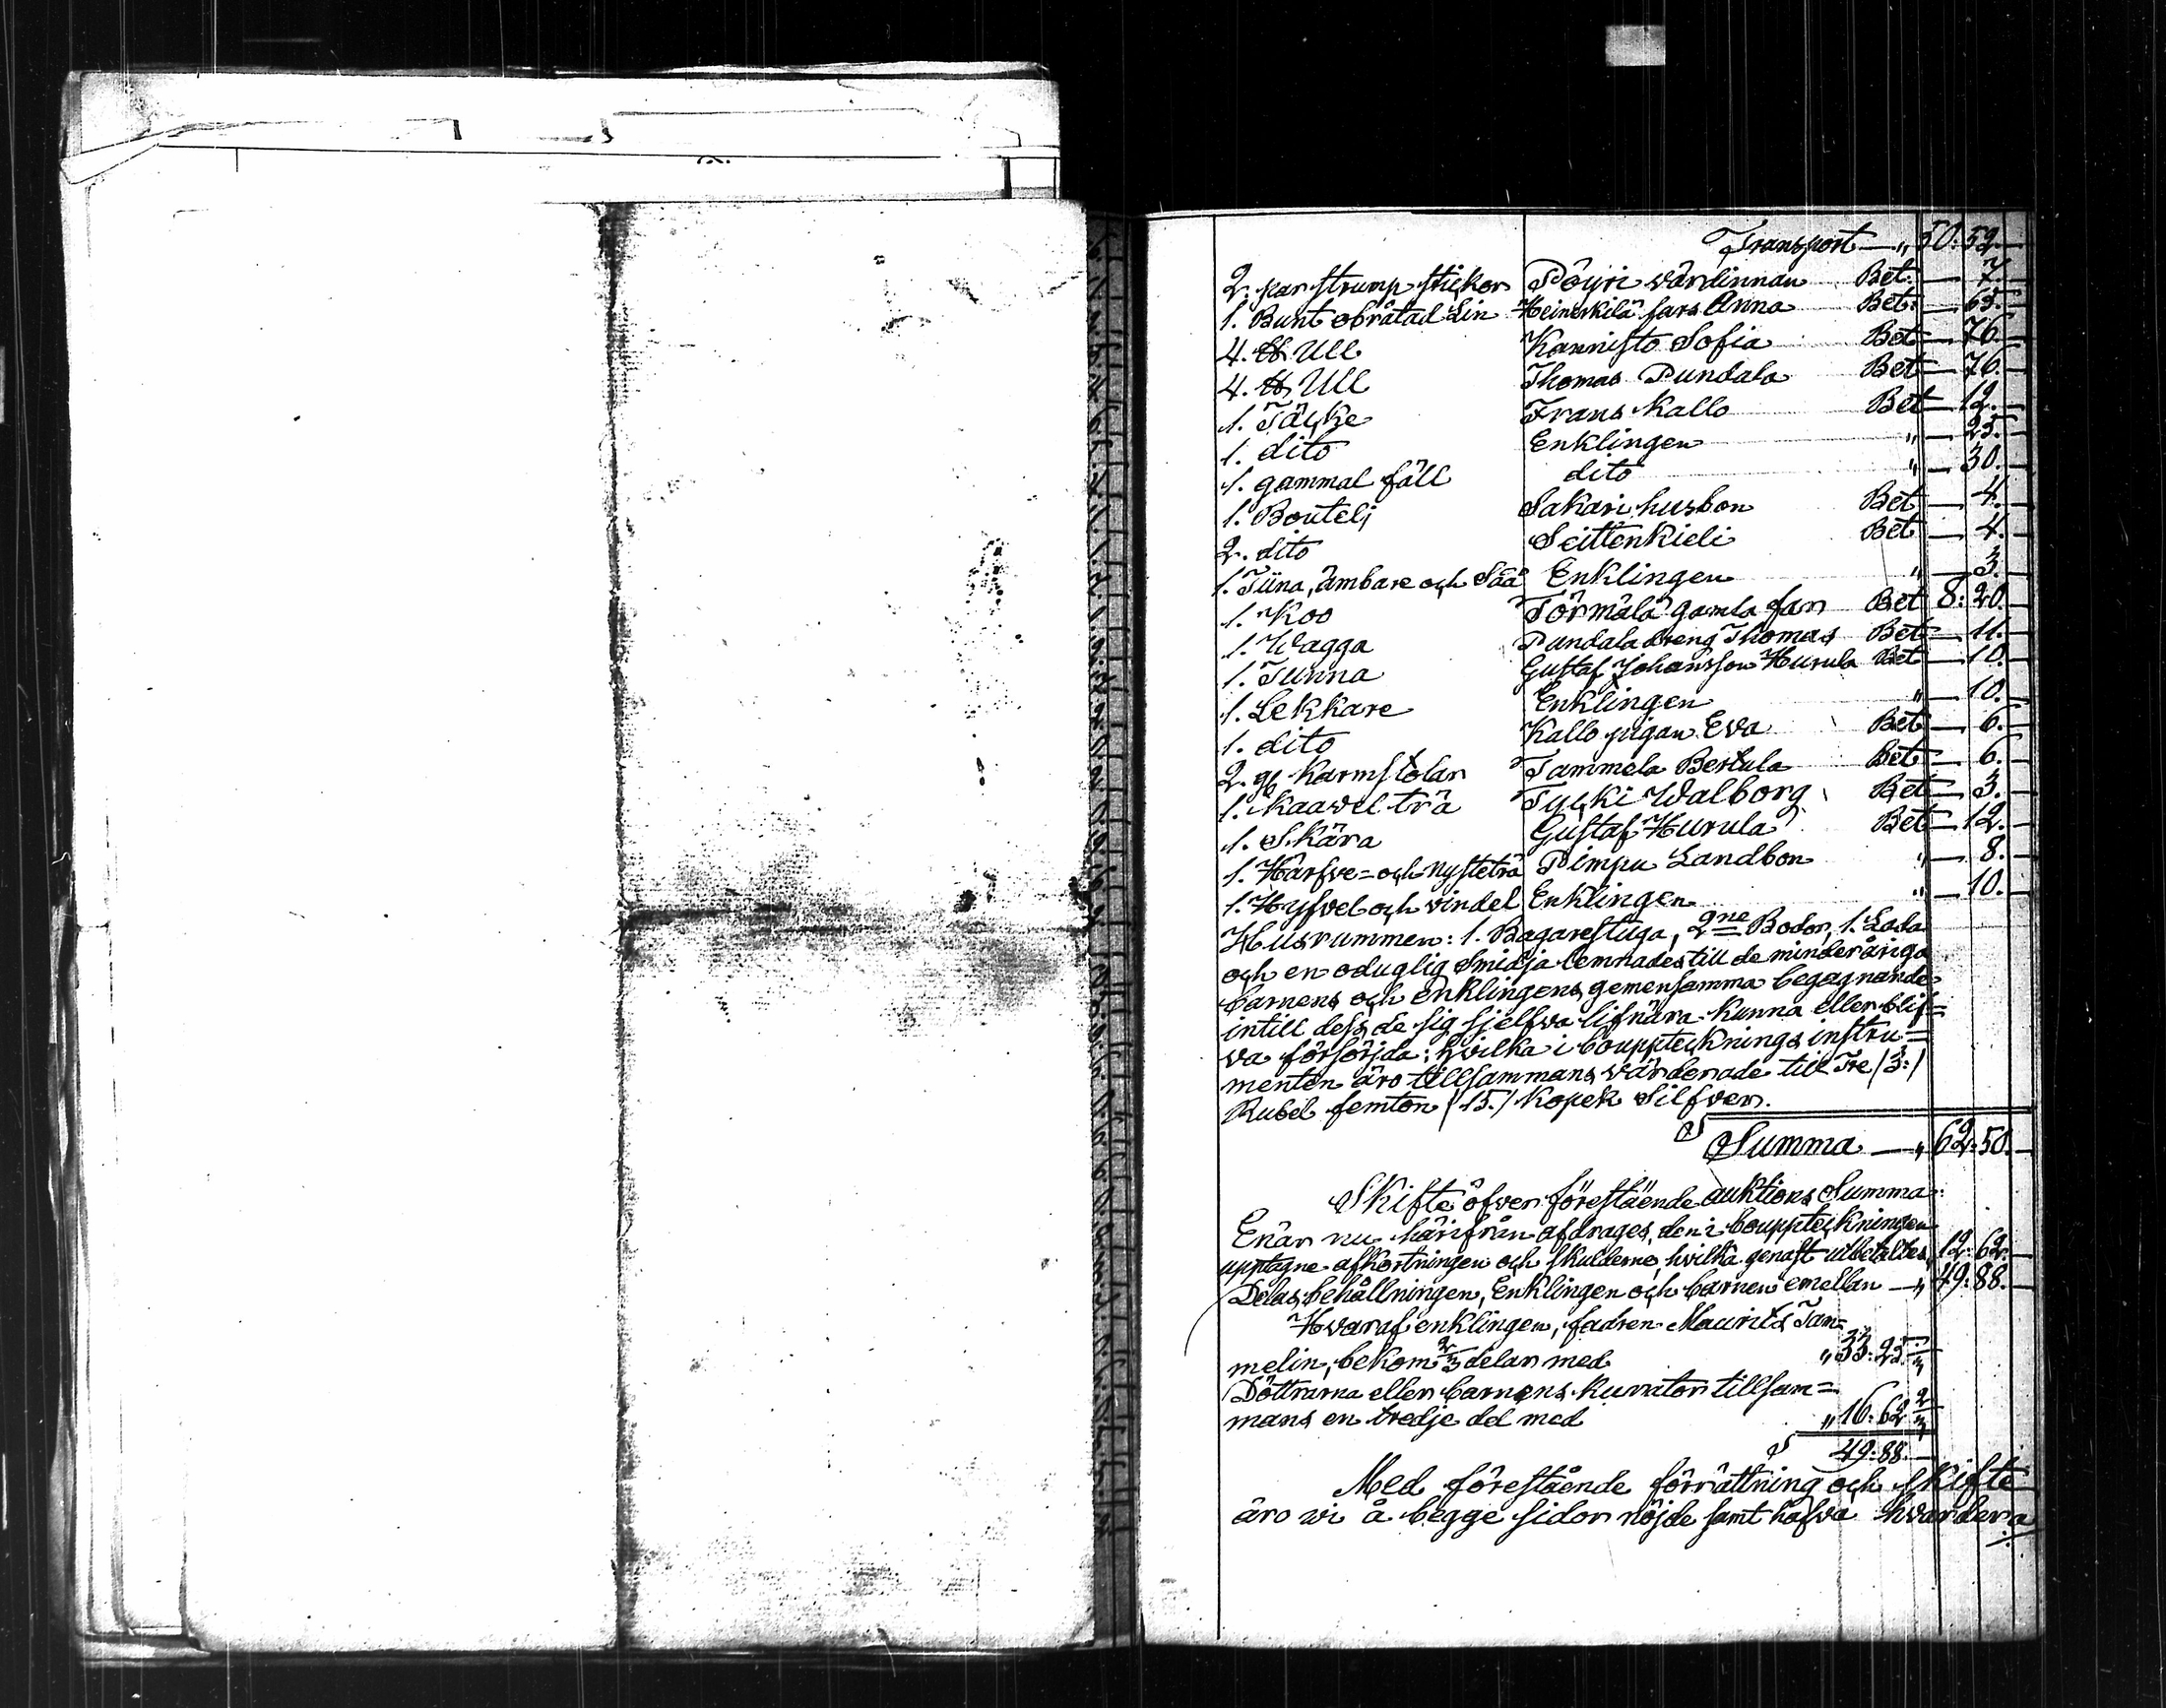 Transport — „ 50: 52. —
2. par strump stickor Pöyri värdinnan Bet: — 7. —
1. Bunt obråtad Lin Heineskilä fars Anna Bet: — 65. —
4. ℔ Ull Kannisto Sofia Bet — 76. —
4. ℔ Ull Thomas Pundala Bet — 76. —
1. Täcke Frans Kallo Bet — 12. —
1. dito Enklingen „ — 25. —
1. gammal fäll dito „ — 30. —
1. Boutelj Sakari husbon Bet — 4. —
2. dito Seittenkieli Bet — 4. —
1. Tiina, ämbare och Såå Enklingen „ — 3. —
1. Koo Törmälä gamla far Bet 8: 20. —
1. Wagga Pundala dreng Thomas Bet — 11. —
1. Tunna Gustaf Johansson Hurula Bet — 10. —
1. Lekkare Enklingen „ — 10. —
1. dito Kallo pigan Eva Bet — 6. —
2. gl. Karmstolar Tammela Bertula Bet — 6. —
1. Kaavel trä Tycki Walborg Bet — 3. —
1. Skära Gustaf Hurula Bet — 12. —
1. Härfve- och nysteträ Pimpu Landbon „ — 8. —
1. Hyfvel och vindel Enklingen „ — 10. —
Husrummen: 1. Bagarestuga, 2ne Bodor, 1. Lada
och en oduglig Smidja lemnades till de minderåriga
barnens och enklingens gemensamma begagnande
intill dess de sig sjelfva lifnära kunna eller blif=
va försörjda; hvilka i bouppteknings instru=
menten äro tillsammans värderade till Tre /3:/
Rubel femton /15./ Kopek Silfver.
S Summa — „ 62: 50. —
Skifte öfver förestående auktions Summa:
Enär nu härifrån afdrages, den i bouppteckningen
upptagne afkortningen och skulderne, hvilka genast utbetaltes, 12: 62. —
Delas behållningen, Enklingen och barnen emellan — „ 49: 88. —
Hvaraf enklingen, fadren Maurits Tam=
melin, bekom 2/3 delar med „ 33: 25 1/3
Döttrarna eller barnens kurator tillsam=
mans en tredje del med „ 16: 62 2/3
S 49: 88. —
Med förestående förrättning och skifte
äro vi å begge sidor nöjde samt hafva hvardera